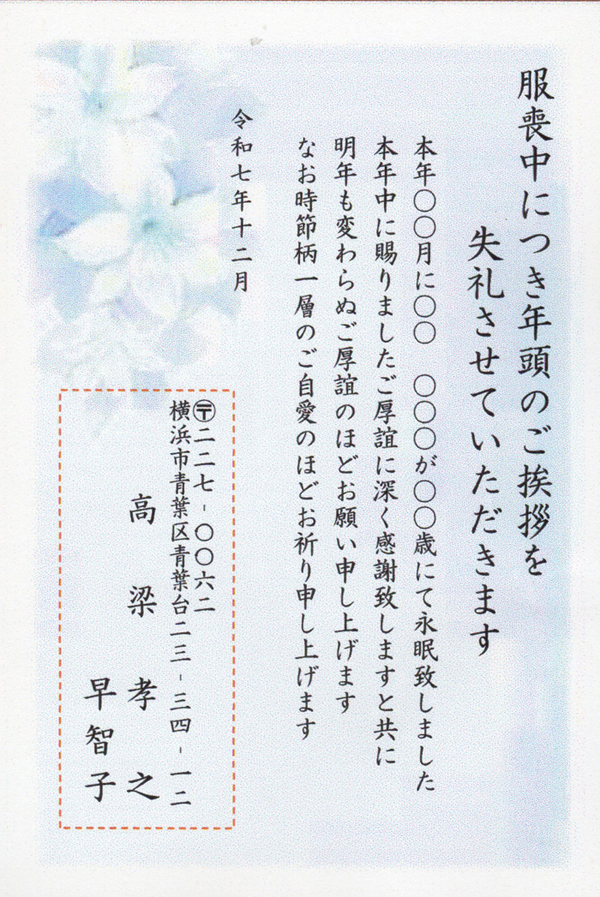 服喪中につき年頭のご挨拶を
失礼させていただきます
本年〇〇月に〇〇　〇〇〇が〇〇歳にて永眠致しました
本年中に賜りましたご厚誼に深く感謝致しますと共に
明年も変わらぬご厚誼のほどお願い申し上げます
なお時節柄一層のご自愛のほどお祈り申し上げます
令和七年十二月
〶二二七-〇〇六二
横浜市青葉区青葉台二三-三四-一二
高梁　孝之
早智子